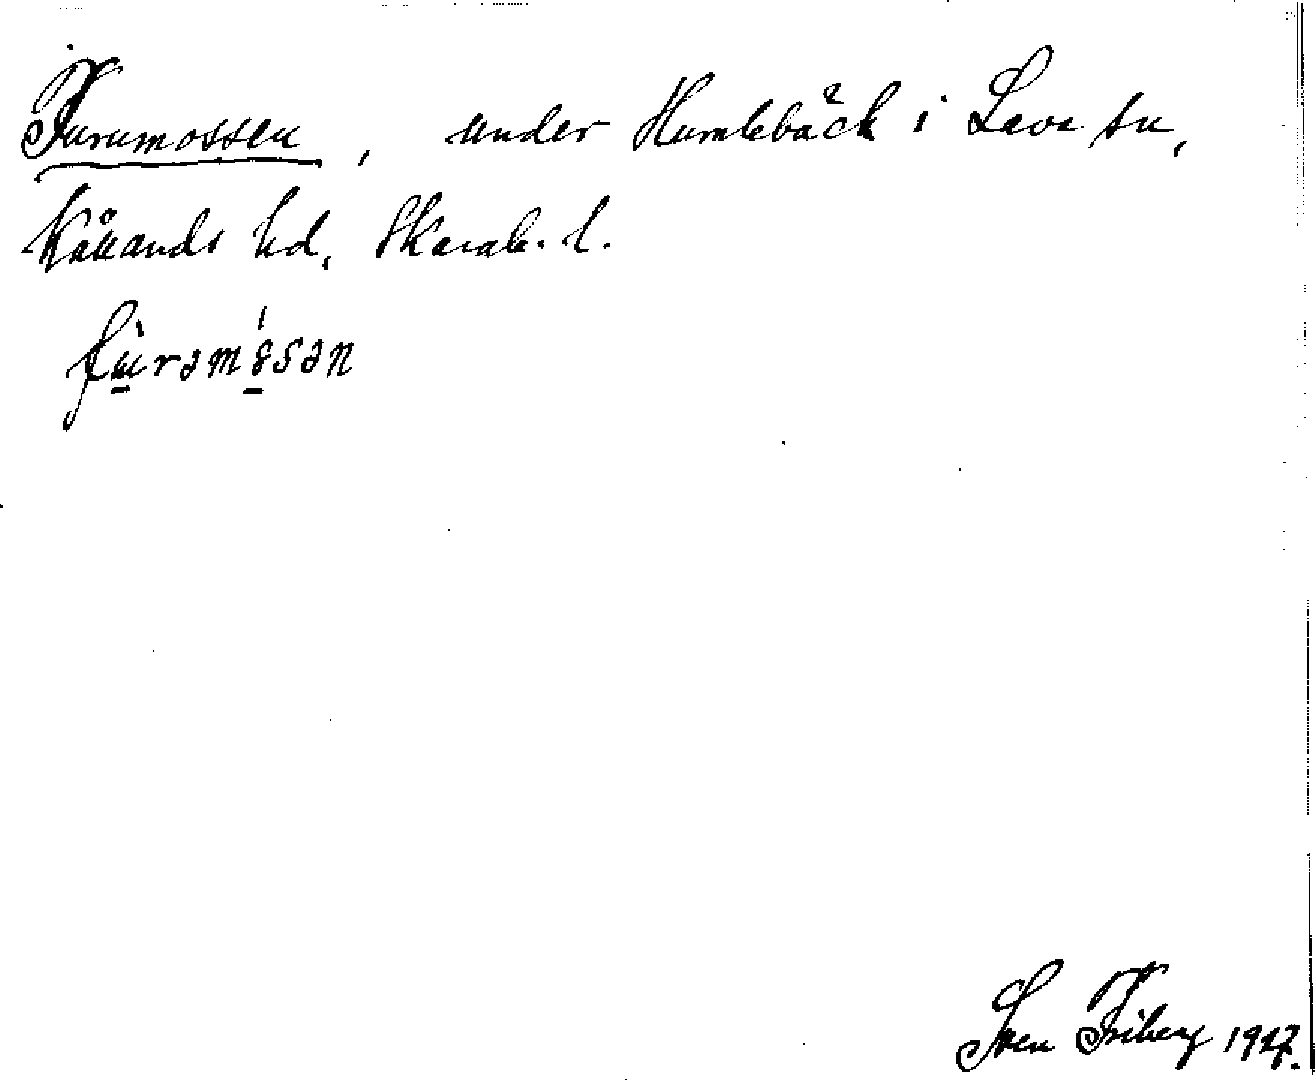 Furumossen, under Humlebäck i Leva sn,
Kåkands hd, Skarab. l.
fùrəmósən
Sven Friberg 1927.